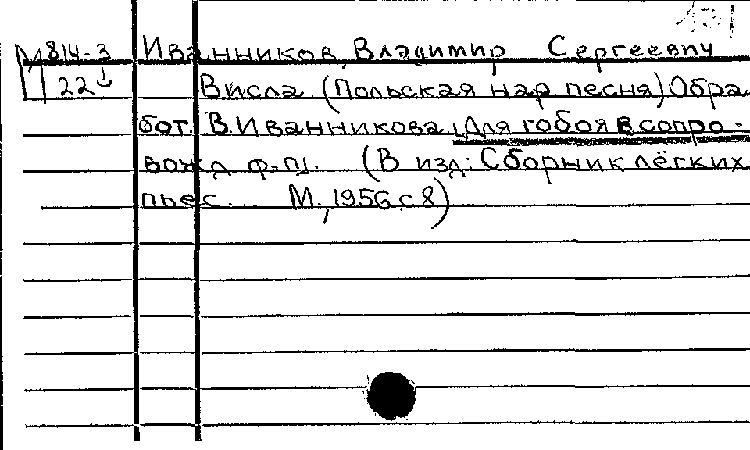 131
М814-3 Иванников, Владимир Сергеевич
22↓ Висла (Польская нар песня) Обра
бот. В.Иванникова. Для гобоя в сопро-
вожд ф-п. (В изд: Сборник лёгких
пьес. М., 1956, с 8)